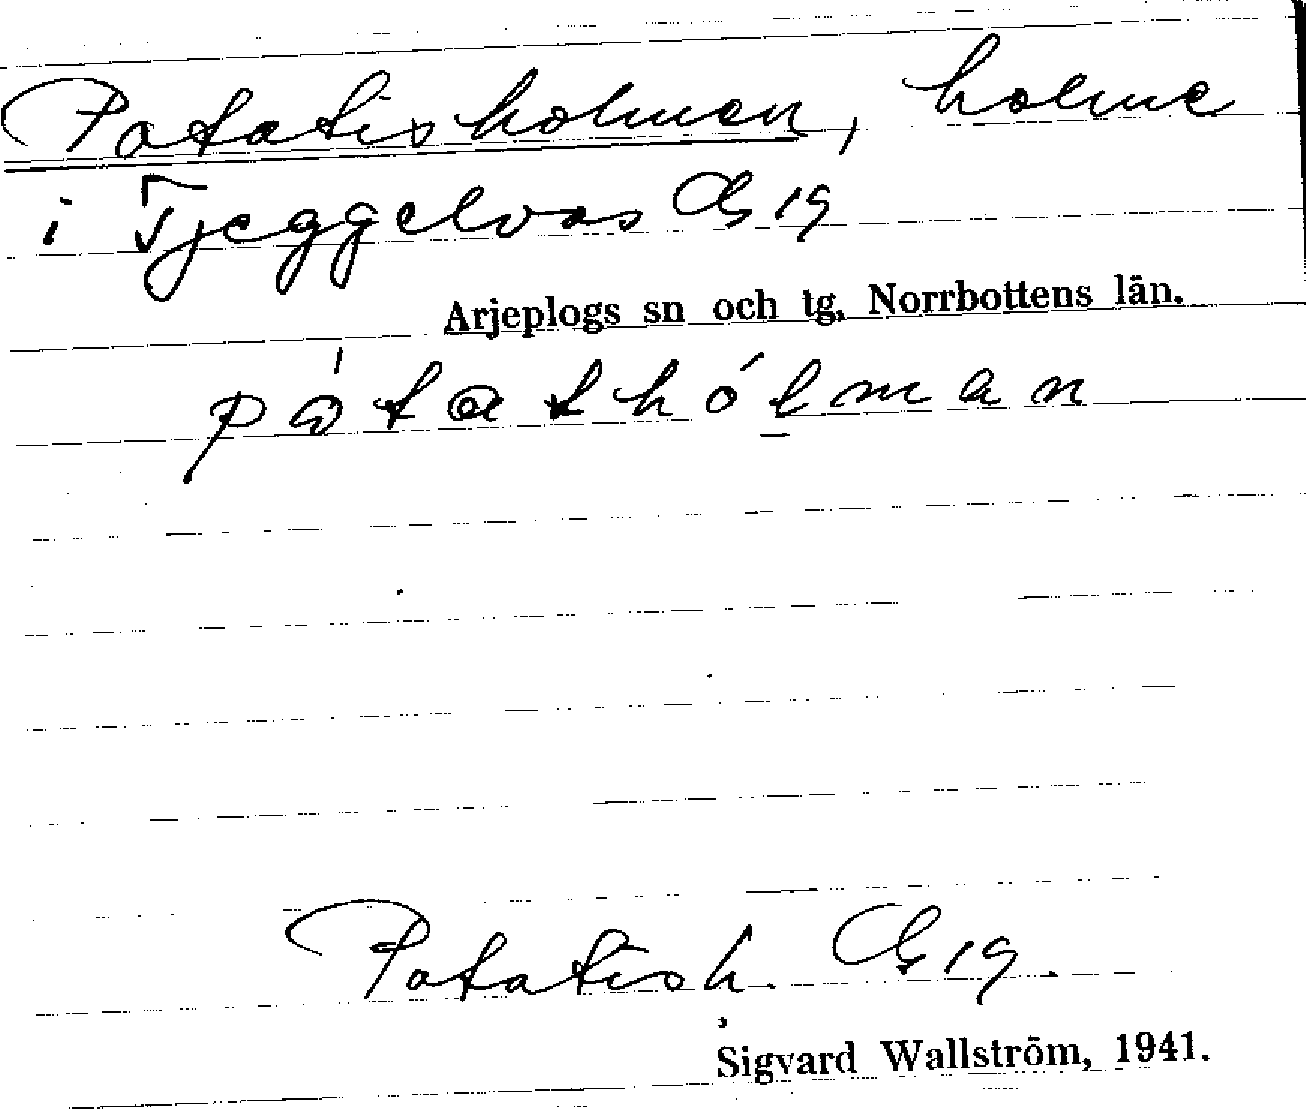 Potatisholmen, holme
i Tjeggelvas G 19
Arjeplogs sn och tg, Norrbottens län.
pátathólman
Potatish. G 19.
Sigvard Wallström, 1941.